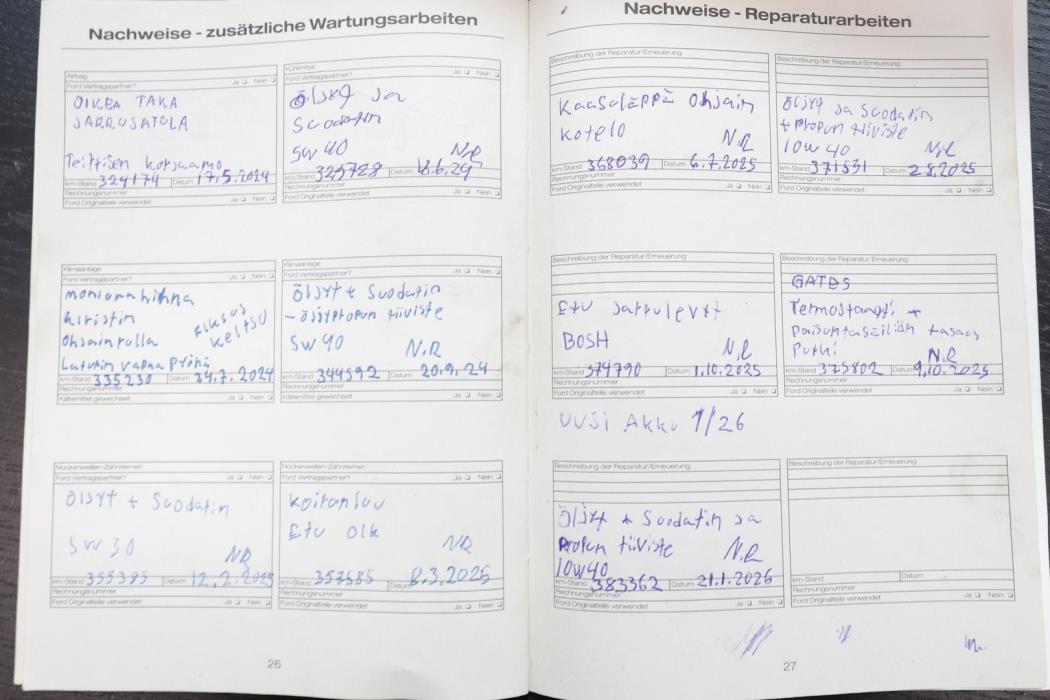 Nachweise - zusätzliche Wartungsarbeiten
Airbag
Ford Vertragspartner? Ja Nein
OIKEA TAKA
JARRUSATULA
Teittisen korjaamo
km-Stand 324174 Datum 17.5.2024
Rechnungsnummer
Ford Originalteile verwendet Ja Nein
Kühlmittel
Ford Vertragspartner? Ja Nein
Öljyt ja
Suodatin
5W40 N.R
km-Stand 325728 Datum 18.6.24
Rechnungsnummer
Ford Originalteile verwendet Ja Nein
Klimaanlage
Ford Vertragspartner? Ja Nein
moniurahihna
kiristin
Ohjainrulla
Laturin vapaa
km-Stand 335230 Datum 24.7.2024
Rechnungsnummer
Kältemittel gewechselt Ja Nein
Klimaanlage
Ford Vertragspartner? Ja Nein
Öljyt + Suodatin
- öljypropun tiiviste
5W40 N.R
km-Stand 344592 Datum 20.9.24
Rechnungsnummer
Kältemittel gewechselt Ja Nein
Nockenwellen-Zahnriemen
Ford Vertragspartner? Ja Nein
Öljyt + Suodatin
5W30 NR
km-Stand 355395 Datum 12.2.2025
Rechnungsnummer
Ford Originalteile verwendet Ja Nein
Nockenwellen-Zahnriemen
Ford Vertragspartner? Ja Nein
Koiranluu
Etu oik
NR
km-Stand 357585 Datum 8.3.2025
Rechnungsnummer
Ford Originalteile verwendet Ja Nein
26
Nachweise - Reparaturarbeiten
Beschreibung der Reparatur/Erneuerung
Kaasuläppä Ohjain
kotelo N.R
km-Stand 368039 Datum 6.7.2025
Rechnungsnummer
Ford Originalteile verwendet Ja Nein
Beschreibung der Reparatur/Erneuerung
Öljyt ja Suodatin
+ Propun tiiviste
10W40 N.R
km-Stand 371531 Datum 2.8.2025
Rechnungsnummer
Ford Originalteile verwendet Ja Nein
Beschreibung der Reparatur/Erneuerung
Etu jarrulevyt
BOSH N.R
km-Stand 374790 Datum 1.10.2025
Rechnungsnummer
Ford Originalteile verwendet Ja Nein
Beschreibung der Reparatur/Erneuerung
GATDS
Termostaatti +
Paisuntasäiliön tasaus
Putki N.R
km-Stand 375802 Datum 9.10.2025
Rechnungsnummer
Ford Originalteile verwendet Ja Nein
UUSi Akku 1/26
Beschreibung der Reparatur/Erneuerung
Öljyt + Suodatin ja
Propun tiiviste N.R
10W40
km-Stand 383362 Datum 21.1.2026
Rechnungsnummer
Ford Originalteile verwendet Ja Nein
Beschreibung der Reparatur/Erneuerung
km-Stand Datum
Rechnungsnummer
Ford Originalteile verwendet Ja Nein
27